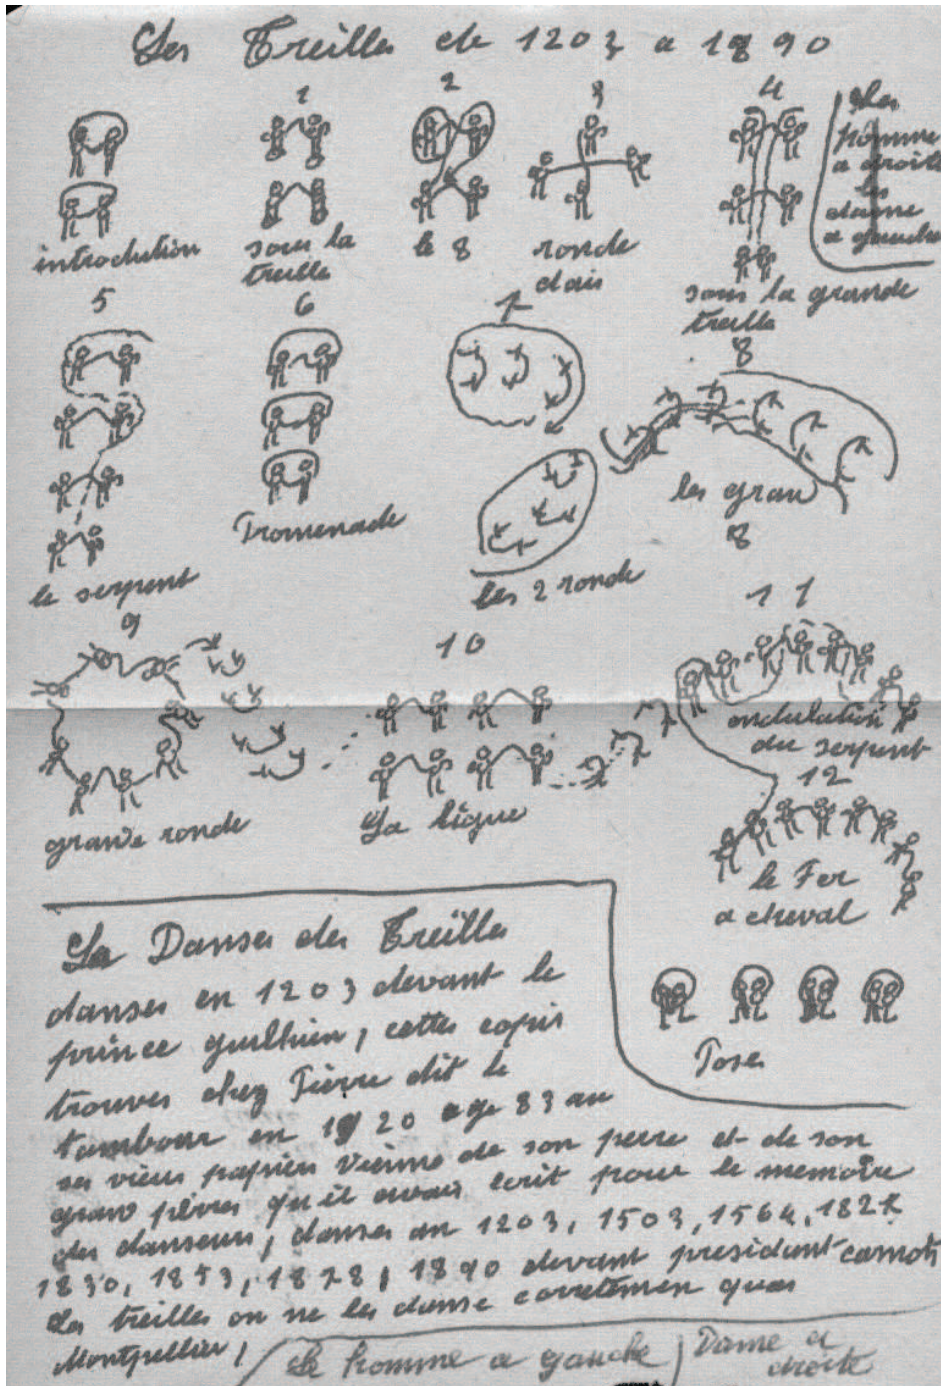 Les Treilles de 1203 a 1890
1
2
3
4
Les
homme
a droite
les
dame
a gauche
introdution
sous la
treille
le 8
ronde
dais
sous la grande
treille
5
6
7
8
le serpent
Promenade
les 2 ronde
les gran
8
9
10
11
grande ronde
La ligue
ondulation
du serpent
12
le Fer
a cheval
Pose
La Danses des Treilles
danses en 1203 devant le
prince guilhien, cettes copis
trouves chez Pierre dit le
tambour en 1920 age 83 an
ses vieus papiers vienne de son perre et de son
gran pères qu'il avais ecrit pour le memoire
des danseurs, danses an 1203, 1503, 1564, 1827
1830, 1853, 1878, 1890 devant president carnot
Les treilles on ne les danse corretemen quas
Montpellier,
Le homme a gauche
Dame a
droite